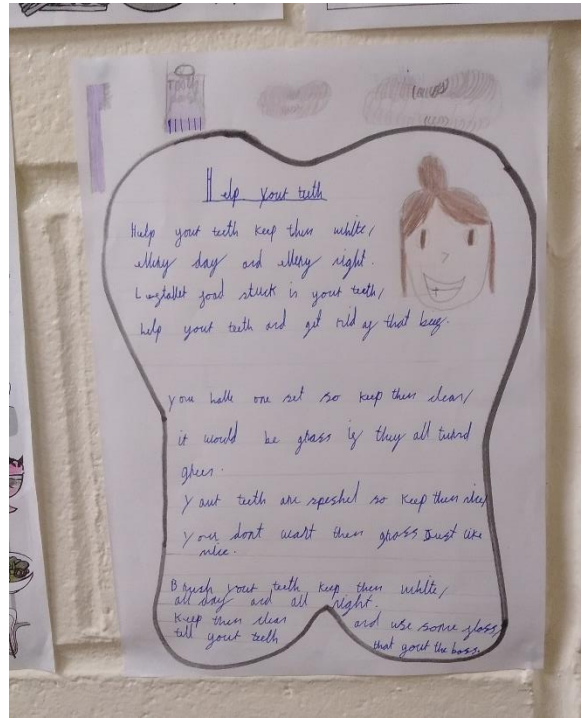 Help your teeth
Help your teeth keep them white,
every day and every night.
food stuck in your teeth,
help your teeth and get rid of that beeg.
you have one set so keep them clean,
it would be gross if they all turnd
green.
Your teeth are speshel so keep them nice,
your dont want them gross Just like
mice.
Brush your teeth keep them white,
all day and all night.
Keep them clean and use some floss,
tell your teeth that your the boss.